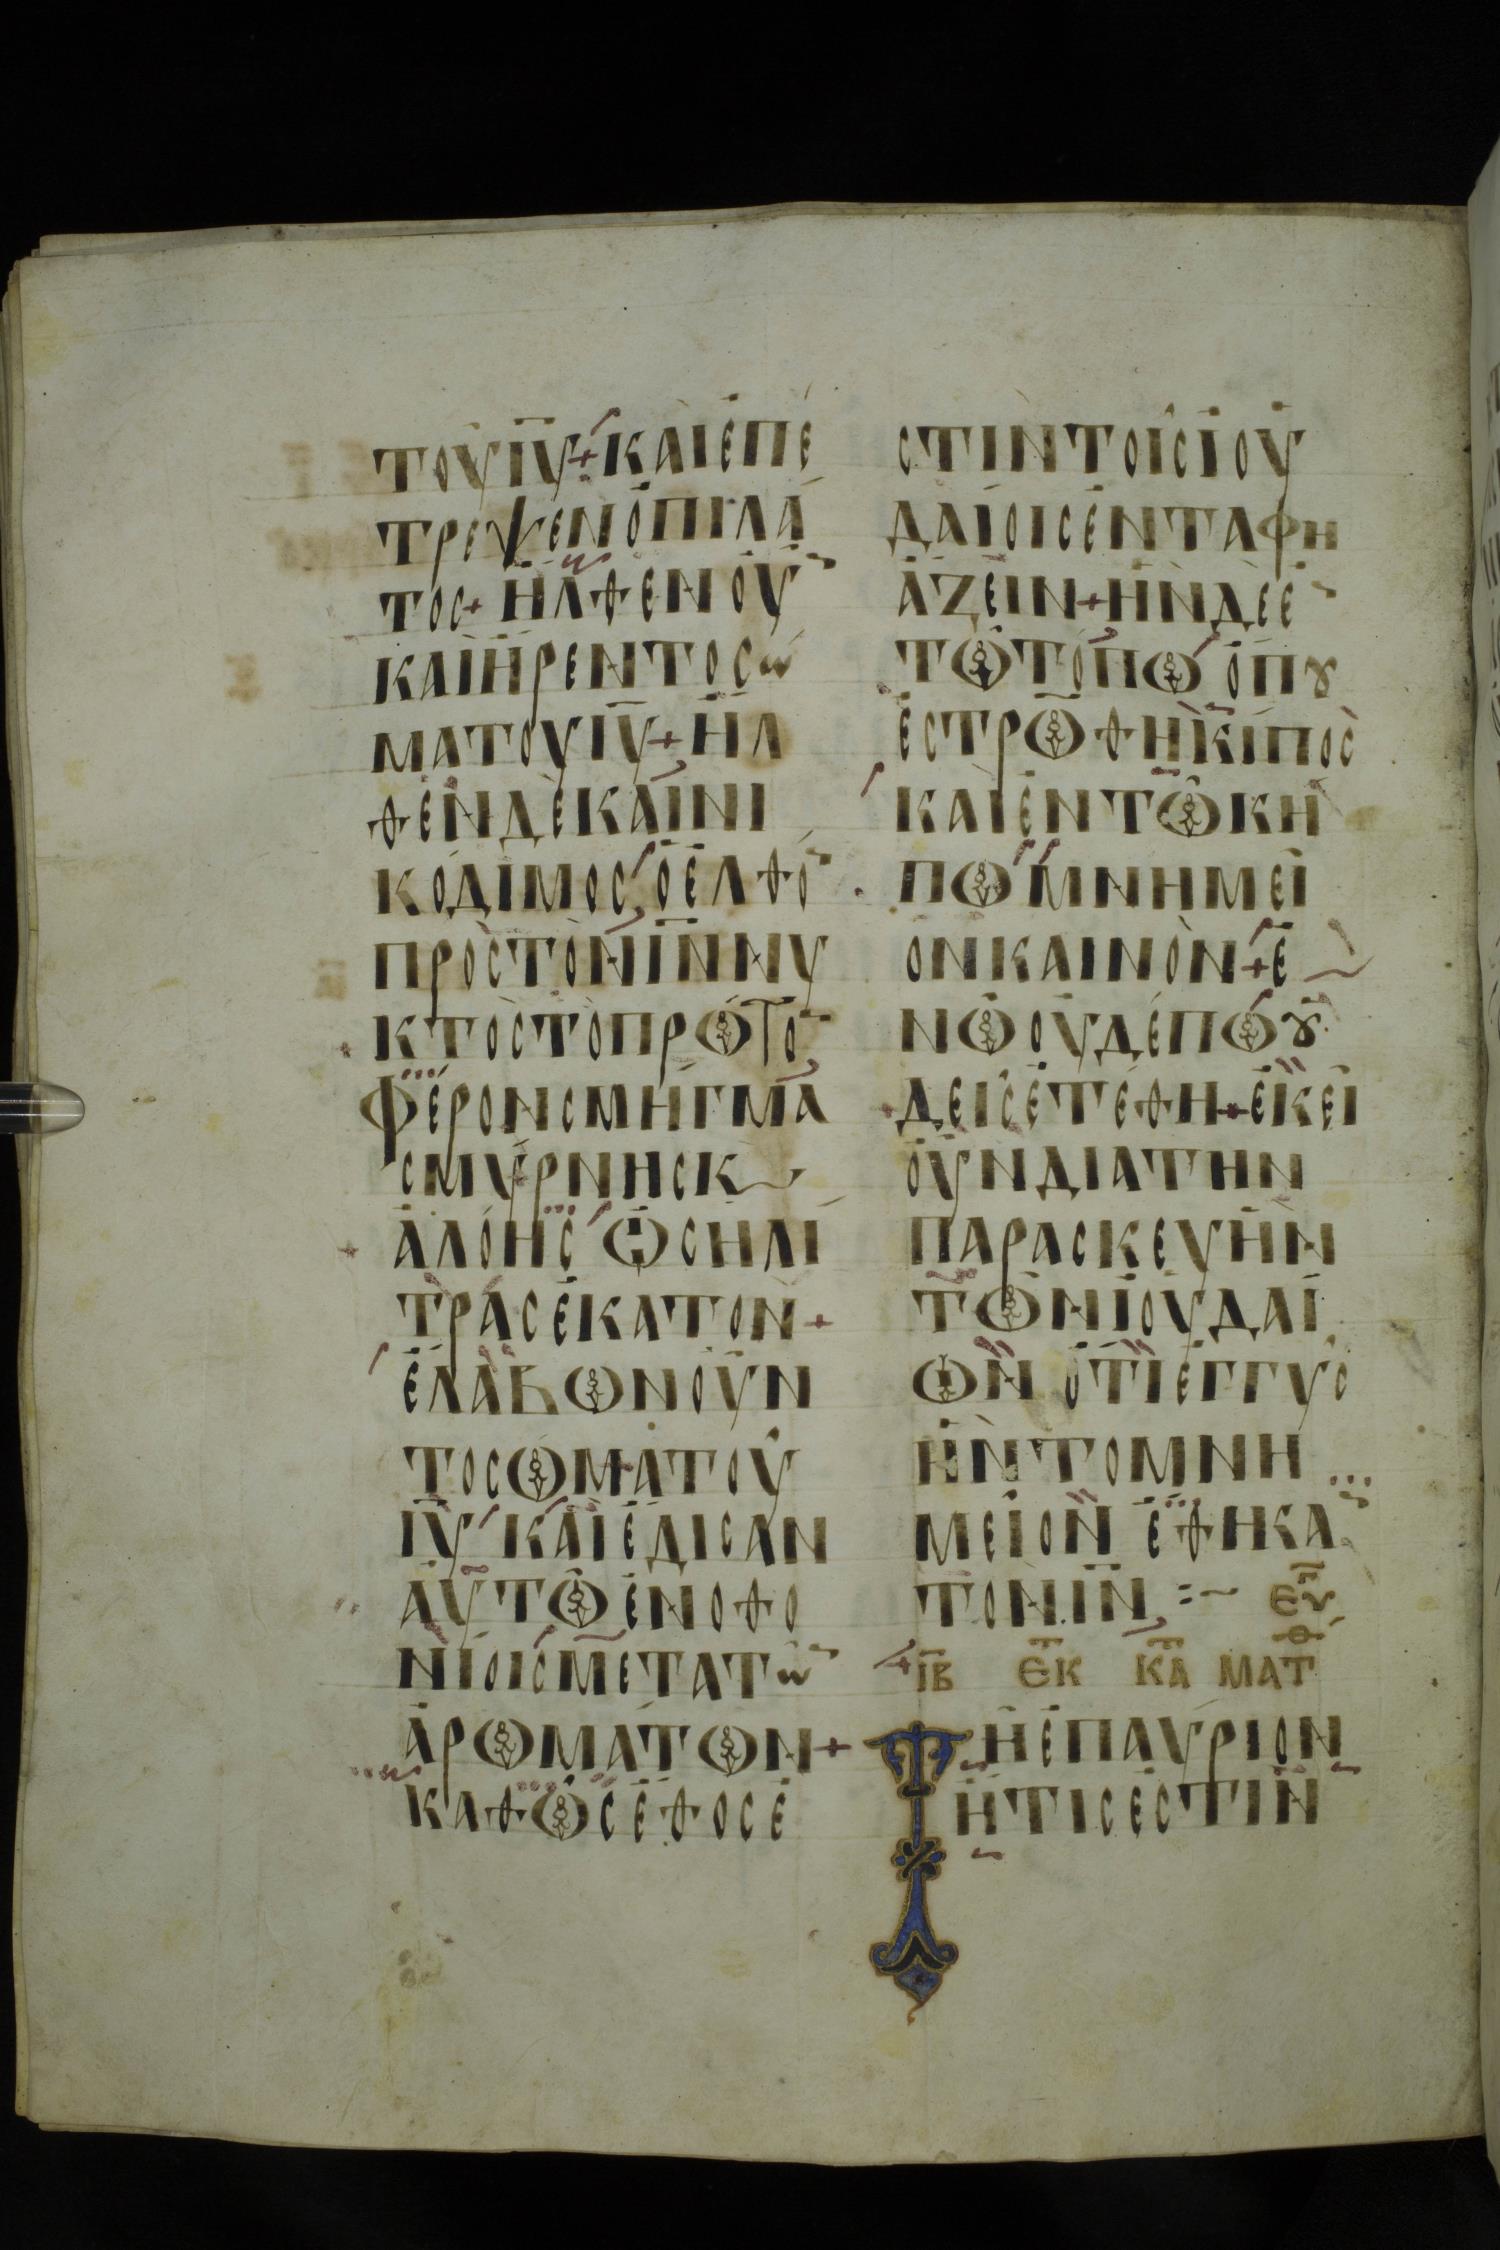 ΤΟΥ ΙΥ + ΚΑΙ ΕΠΕ
ΤΡΕΨΕΝ Ο ΠΙΛΑ
ΤΟС + ΗΛΘΕΝ ΟΥ̅
ΚΑΙ ΗΡΕΝ ΤΟ Сω
ΜΑ ΤΟΥ ΙΥ + ΗΛ
ΘΕΝ ΔΕ ΚΑΙ ΝΙ
ΚΟΔΙΜΟС Ο ΕΛΘΟ̅
ΠΡΟС ΤΟΝ ΙΝ ΝΥ
ΚΤΟС ΤΟ ΠΡΩΤΟ̅
ΦΕΡΟΝ СΜΗΓΜΑ
СΜΥΡΝΗС Κ
ΑΛΟΗС ΩС ΗΛΙ
ΤΡΑС ΕΚΑΤΟΝ +
ΕΛΑΒΩΝ ΟΥΝ
ΤΟ СΩΜΑ ΤΟΥ
ΙΥ ΚΑΙ ΕΔΙСΑΝ
ΑΥΤΩ ΕΝ ΟΘΟ
ΝΙΟΙС ΜΕΤΑ Τω̅
ΑΡΩΜΑΤΩΝ +
ΚΑΘΩС ΕΘΟС Ε
СΤΙΝ ΤΟΙС ΙΟΥ
ΔΑΙΟΙС ΕΝΤΑΦΗ
ΑΖΕΙΝ + ΗΝ ΔΕ Ε̅
ΤΩ ΤΟΠΩ ΟΠȣ
ΕСΤΡΩΘΗ ΚΙΠΟС
ΚΑΙ ΕΝ ΤΩ ΚΗ
ΠΩ ΜΝΗΜΕΙ
ΟΝ ΚΑΙΝΟΝ + Ε
ΝΩ ΟΥΔΕΠΩ ȣ
ΔΕΙС ΕΤΕΘΗ + ΕΚΕΙ
ΟΥΝ ΔΙΑ ΤΗΝ
ΠΑΡΑСΚΕΥΗΝ
ΤΩΝ ΙΟΥΔΑΙ
ΩΝ ΟΤΙ ΕΓΓΥС
ΗΝ ΤΟ ΜΝΗ
ΜΕΙΟΝ ΕΘΗΚΑ̅
ΤΟΝ ΙΝ :~ ΕΥ
ΙΒ ΕΚ ΚΑ ΜΑΤΘ
ΤΗ ΕΠΑΥΡΙΟΝ
ΗΤΙС ΕСΤΙΝ